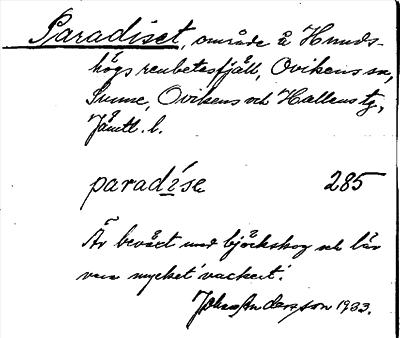 Paradiset, område å Hunds-
högs renbetesfjäll, Ovikens sn,
Sunne, Ovikens och Hallens tg,
Jämtl. l.
paradí̲se 285
Är beväxt med björkskog och lär
vara mycket 'vackert'.
Johan Andersson 1933.